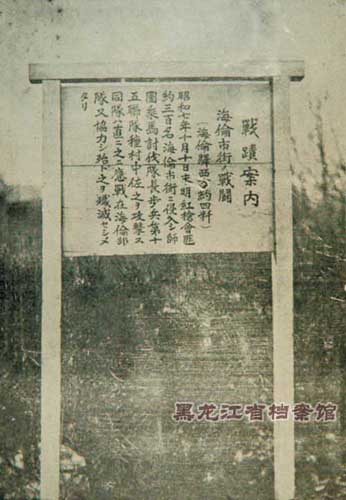 戰蹟案内
海倫市街ノ戰鬪
(海倫驛西方約四粁)
昭和七年十月十日末明紅槍會匪
約三百名海倫市街ニ侵入シ師
團乘馬討伐隊長步兵第十
五聯隊種村中佐之ヲ攻擊ス
同隊ハ直ニ之ニ應戰在海倫部
隊又協力シ殆ト之ヲ殲滅セシメ
タリ
黑龙江省档案馆